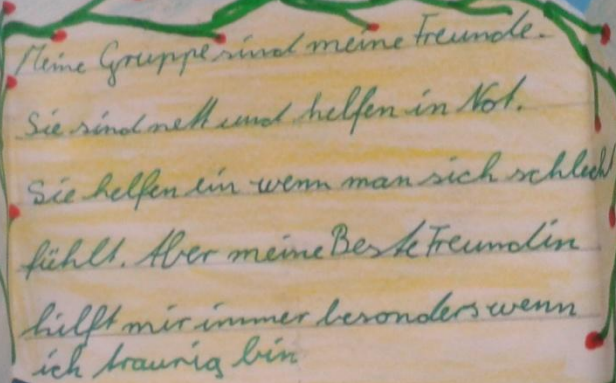 Meine Gruppe sind meine Freunde.
Sie sind nett und helfen in Not.
Sie helfen ein wenn man sich schlecht
fühlt. Aber meine Beste Freundin
hilft mir immer besonders wenn
ich traurig bin